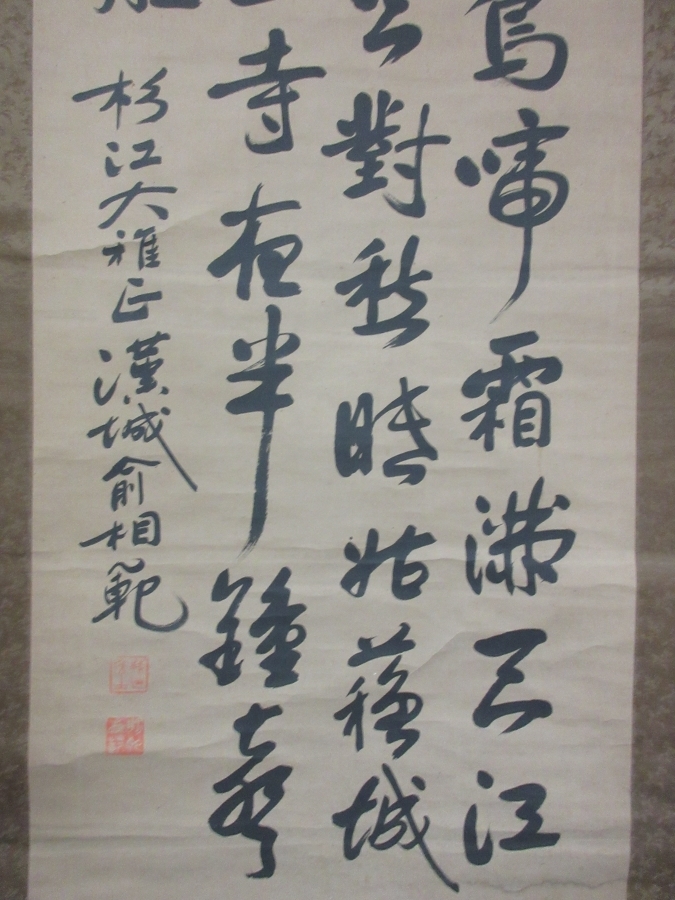 烏啼霜滿天江
對愁眠姑蘇城
寺夜半鐘聲
杉江大雅正漢城俞相範